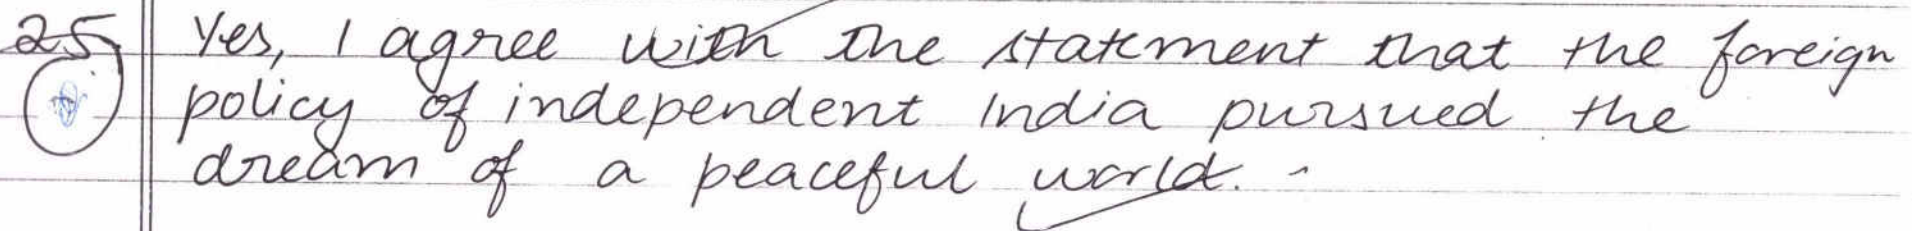 25 Yes, I agree with the statement that the foreign
policy of independent India pursued the
dream of a peaceful world.